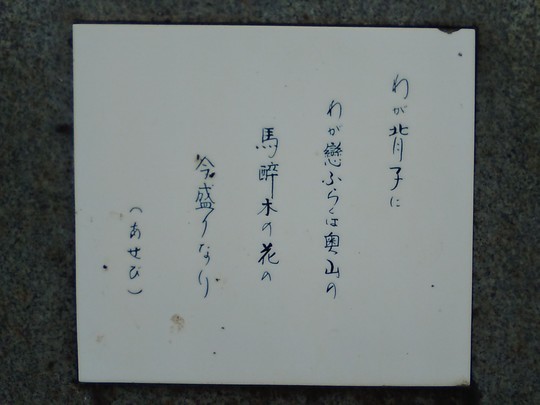 わが背子に
わが戀ふらくは奥山の
馬醉木の花の
今盛りなり
(あせび)